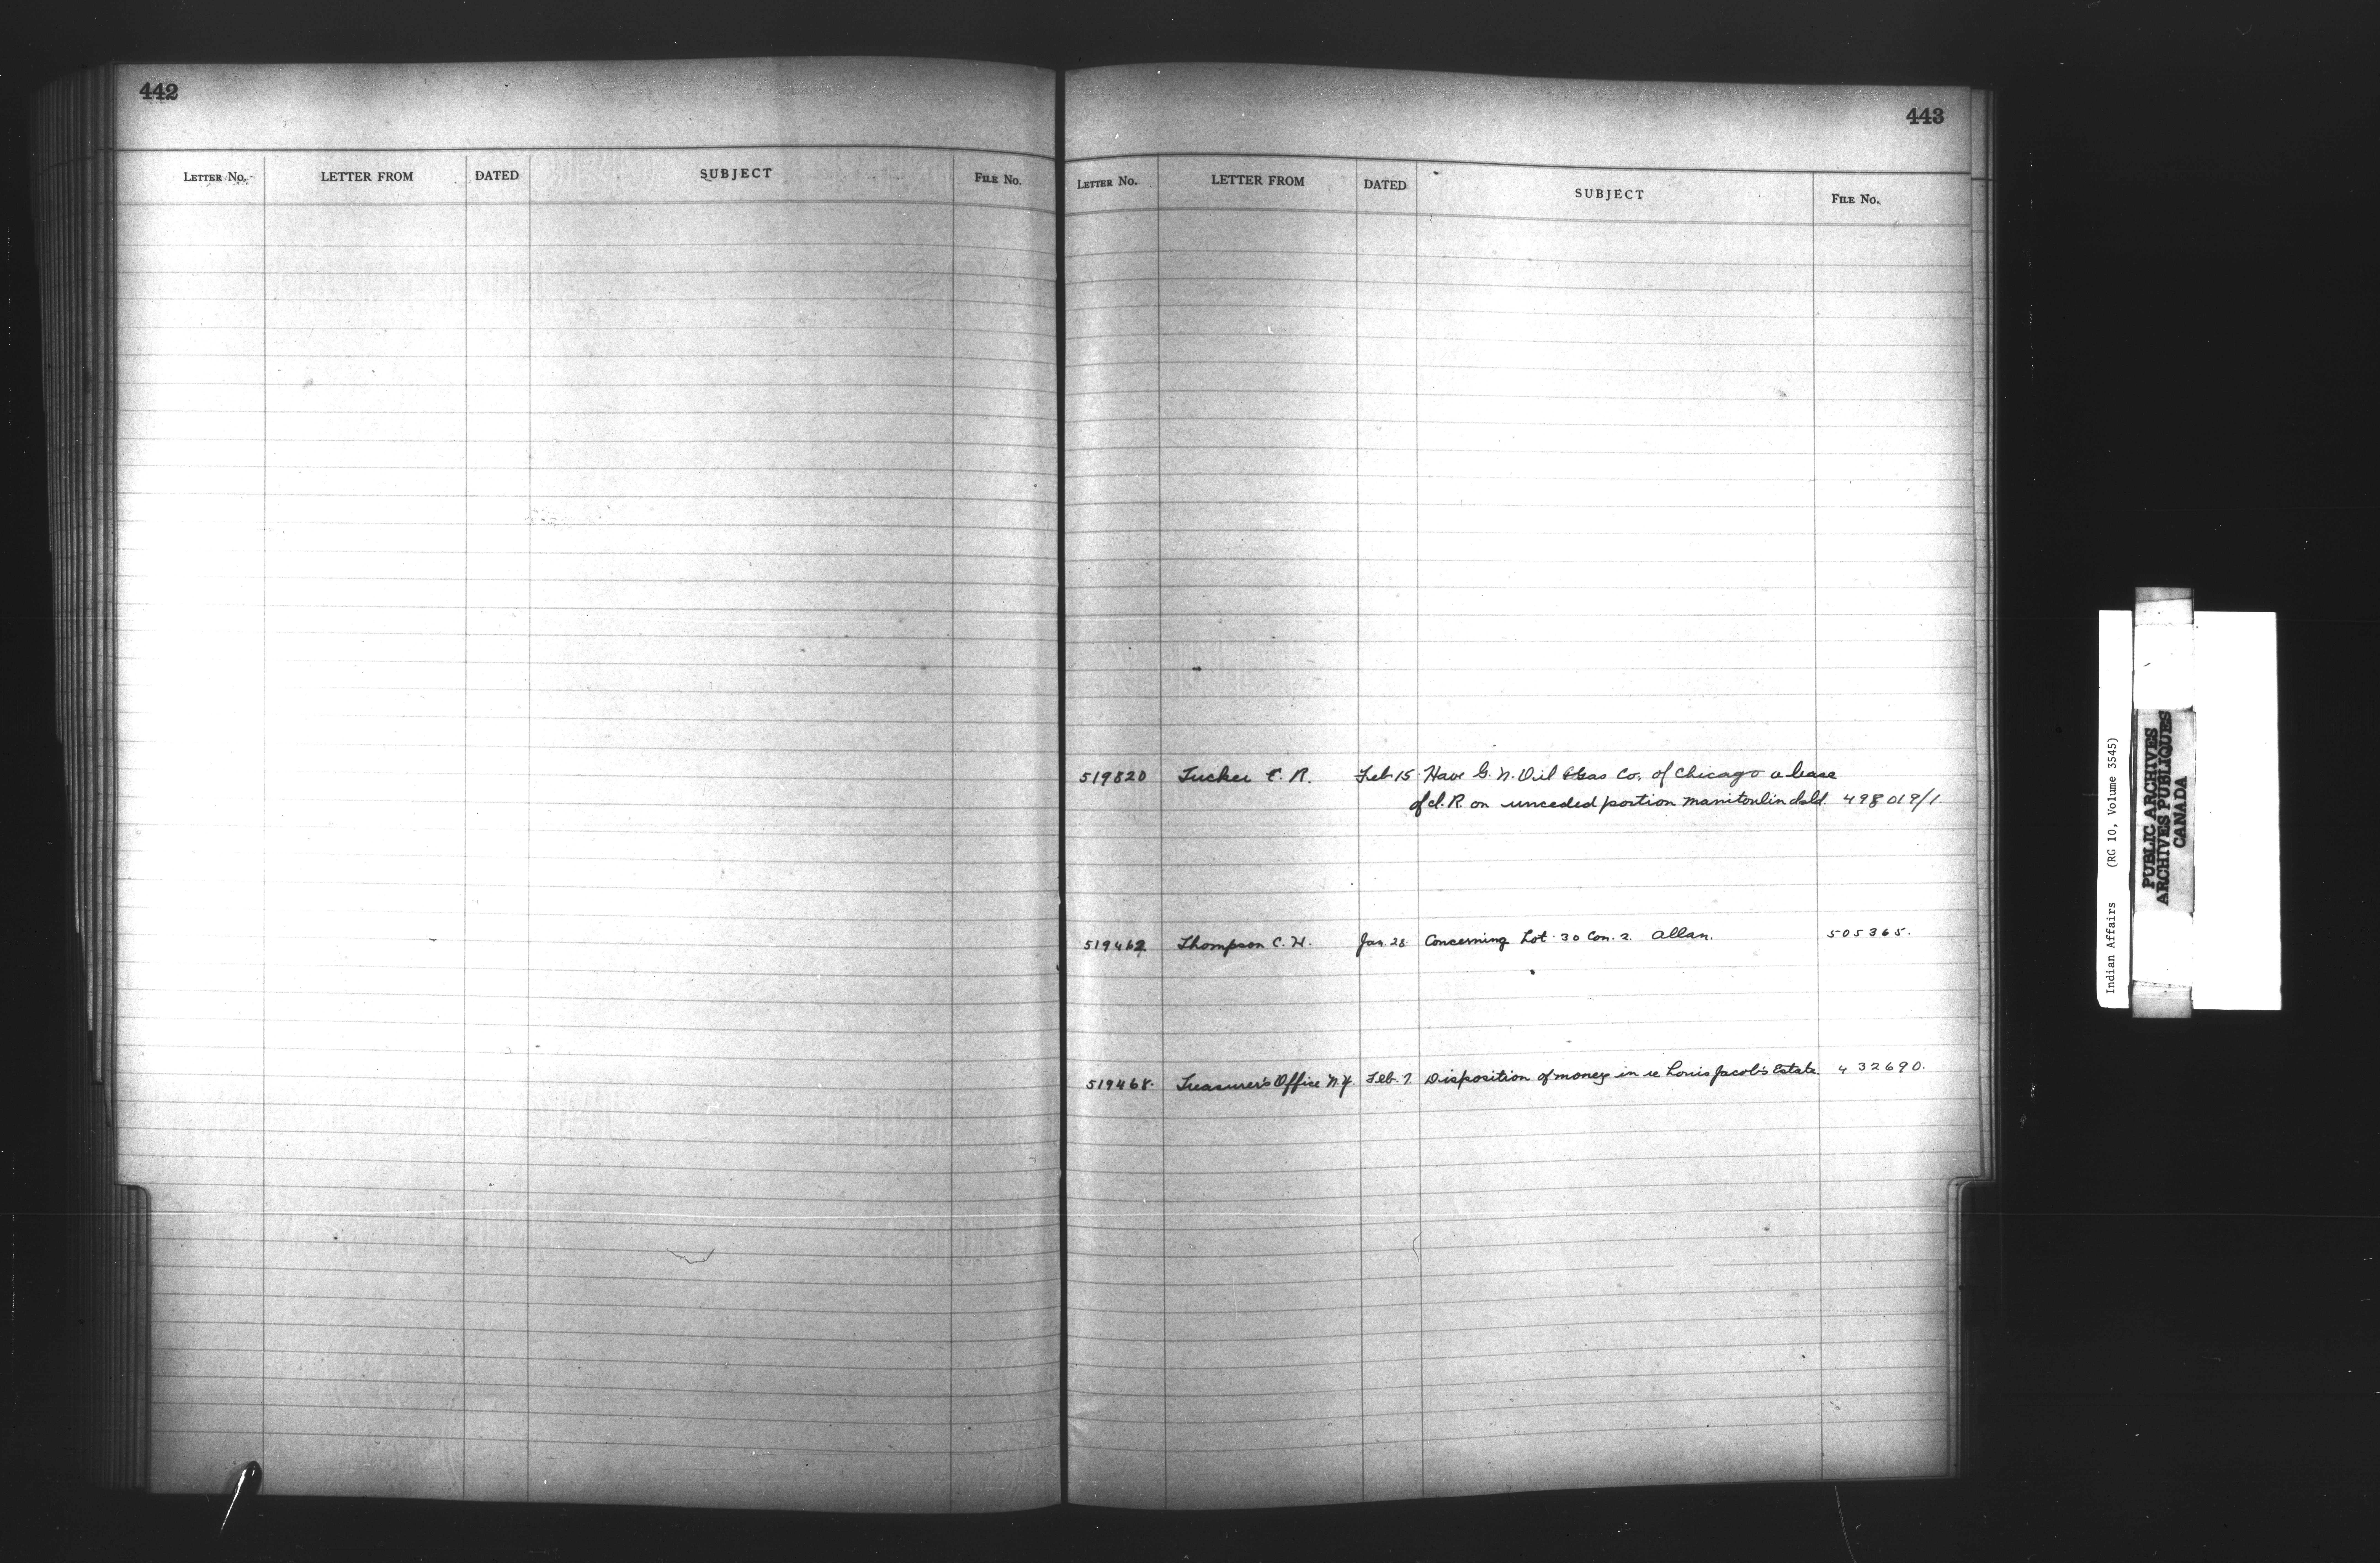 442
LETTER No. LETTER FROM DATED SUBJECT FILE No.
443
LETTER No. LETTER FROM DATED SUBJECT FILE No.
519820 Tucker E. R. Feb 15 Have G. N. Oil & Gas Co. of Chicago a lease
of I. R. on unceded portion Manitoulin Isld. 498019/1.
519462 Thompson C. H. Jan. 28 Concerning Lot 30 Con. 2. Allan. 505365.
519468. Treasurer's Office N.Y. Feb. 7. Disposition of money in re Louis Jacob's Estate 432690.
Indian Affairs (RG 10, Volume 3545)
PUBLIC ARCHIVES
ARCHIVES PUBLIQUES
CANADA